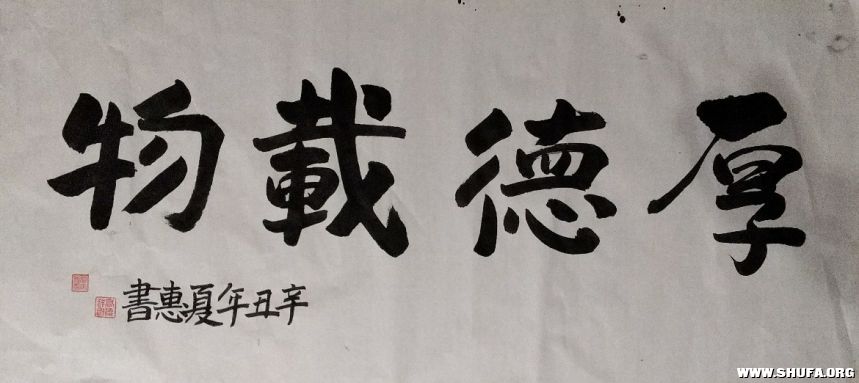 厚德載物
辛丑年夏惠書
WWW.SHUFA.ORG